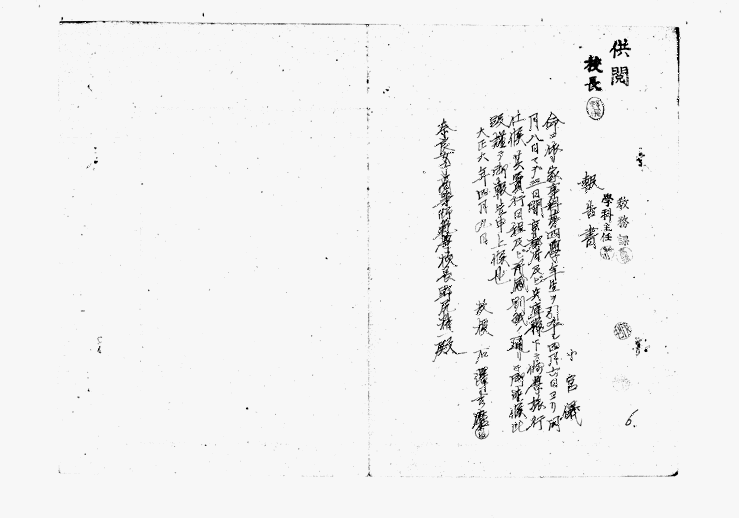 供閲
校長
教務課
學科主任
報告書
小官儀
命ニ依リ家事科第四學年生ヲ引率シ四月六日ヨリ同
月八日マデ三日間京都府及ビ兵庫縣下ニ修學旅行
仕候其實行日程及ビ所感別紙ノ通リニ御座候此
段謹ヲ御報告申上候也
大正六年四月
教授 石澤吉麿
奈良女子高等師範學校長野尻精一殿
6.